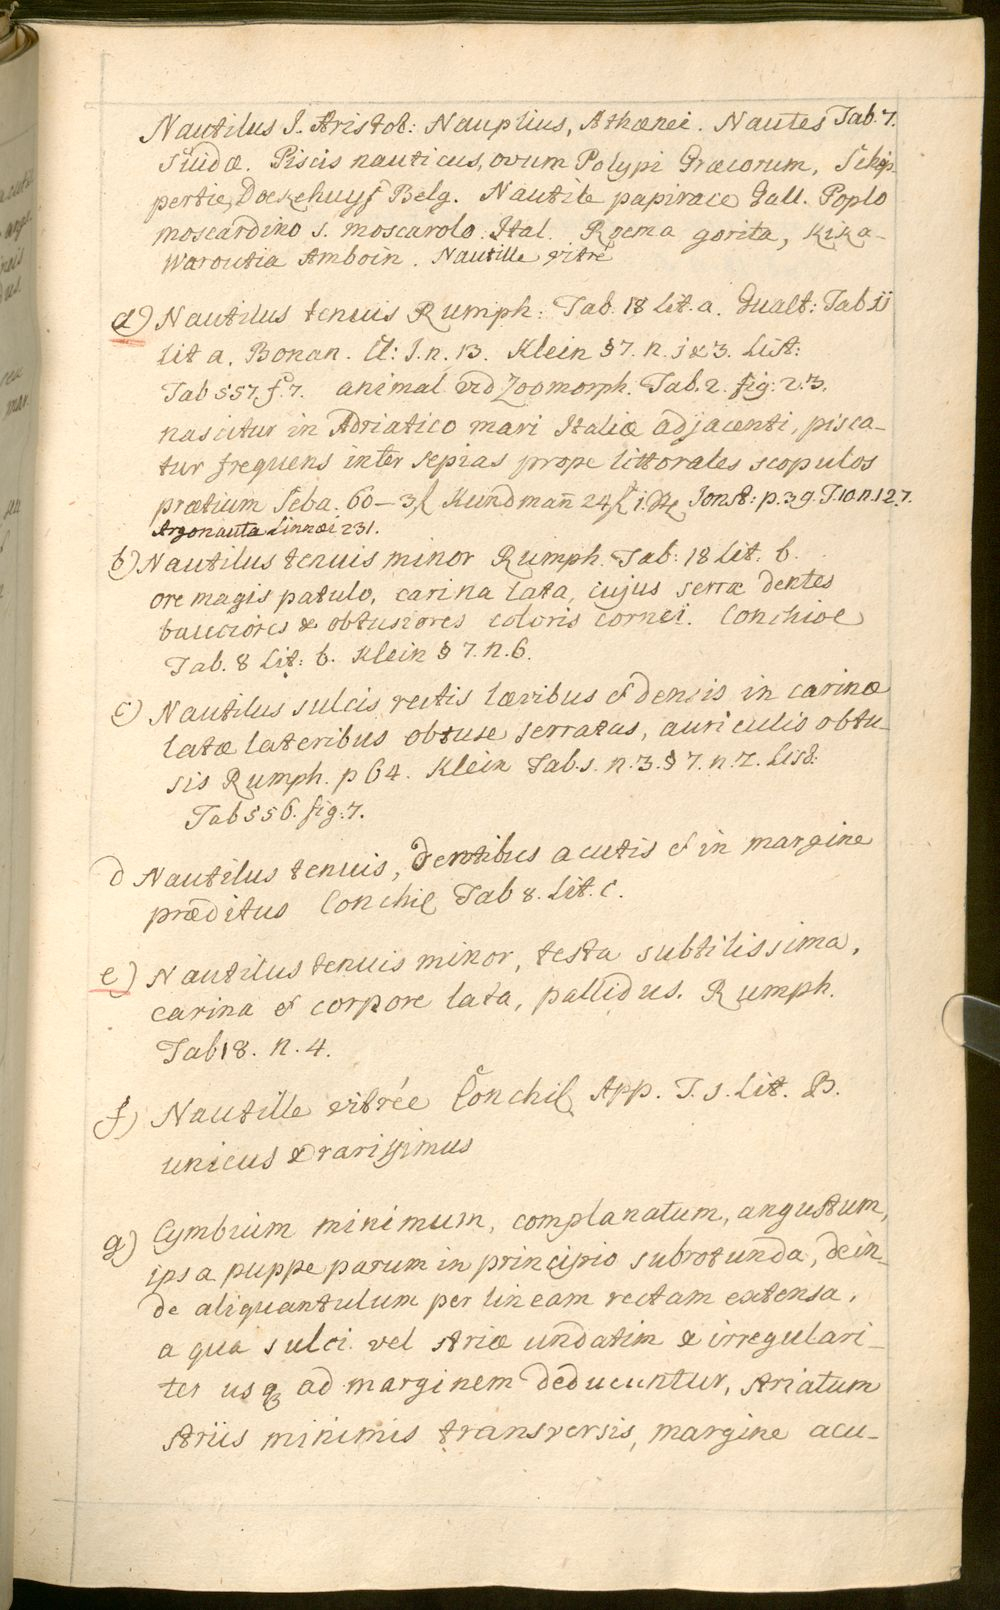 Nautilus I. Aristot: Nauplius, Athænei. Nautes Tab. 7.
Suidæ. Piscis nauticus, ovum Polypi Græcorum, Schip-
pertie, Doekehuyf Belg. Nautile papirace Gall. Poplo
moscardino s. moscarolo. Ital. Roema gorita, Kika-
Waroutia Amboin. Nautille vitré
a) Nautilus tenuis Rumph: Tab. 18 Lit. a. Gualt: Tab 11
Lit a. Bonan. Cl: I. n. 13. Klein § 7. n. 1 & 3. List:
Tab 557, f. 7. animal vid Zoomorph. Tab. 2. fig: 2. 3.
nascitur in Adriatico mari Italiæ adjacenti, pisca-
tur frequens inter sepias prope littorales scopulos
prætium Seba. 60 – 3 f Kundmañ 24 f Jonst: p. 39. T. 10. n. 127.
Argonauta Linnæi 231.
b) Nautilus tenuis minor Rumph. Tab: 18 Lit. b.
ore magis patulo, carina lata, cujus serræ dentes
pauciores & obtusiores coloris cornei. Conchiol
Tab. 8 Lit: b. Klein § 7. n. 6.
c) Nautilus sulcis rectis lævibus & densis in carinæ
latæ lateribus obtuse serratas, auriculis obtu-
sis Rumph. p 64. Klein Tab. s. n. 3. § 7. n. 7. List.
Tab 556. fig: 7.
d Nautilus tenuis, dentibus acutis & in margine
præditus Conchil Tab 8. Lit. C.
e) Nautilus tenuis minor, testa subtilissima,
carina & corpore lata, pallidus. Rumph.
Tab 18. n. 4.
f) Nautille vitrée Conchil App. T. 1. Lit. B.
unicus & rarissimus
g) Cymbium minimum, complanatum, angustum,
ipsa puppe parum in principio subrotunda, dein-
de aliquantulum per lineam rectam extensa,
a qua sulci vel striæ undatim & irregulari-
ter usq ad marginem deducuntur, striatum
striis minimis transversis, margine acu-